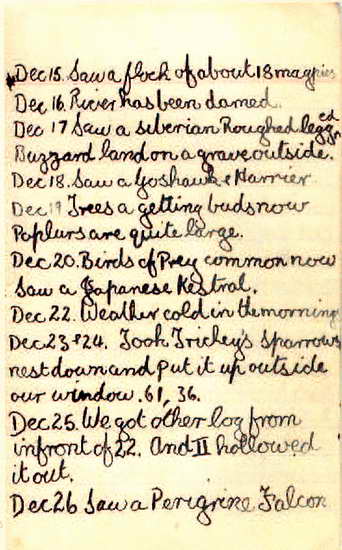 Dec 15. Saw a flock of about 18 magpies
Dec 16. River has been damed.
Dec 17 Saw a siberian Roughed legged
Buzzard land on a grave outside.
Dec 18. Saw a Goshawk & Harrier
Dec 19 Trees a getting buds now
Poplurs are quite large.
Dec 20. Birds of Prey common now
Saw a Japanese Kestral.
Dec 22. Weather cold in the morning
Dec 23 & 24. Took Trickey's Sparrows
nest down and put it up outside
our window. 61, 36.
Dec 25. We got other log from
infront of 22. And II hollowed
it out.
Dec 26 Saw a Peregrine Falcon